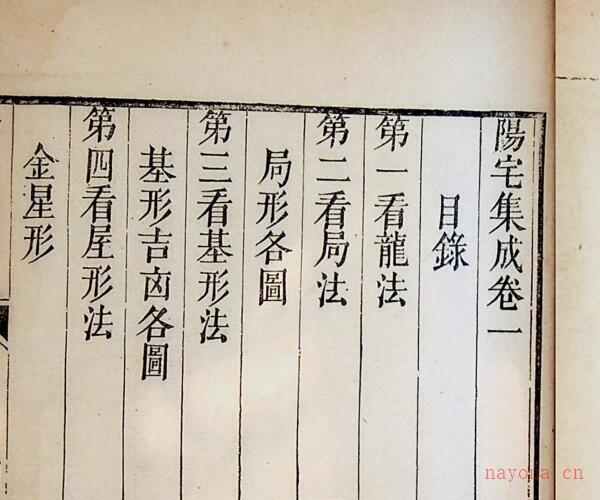 陽宅集成卷一
目錄
第一看龍法
第二看局法
局形各圖
第三看基形法
基形吉凶各圖
第四看屋形法
金星形
nayona.cn